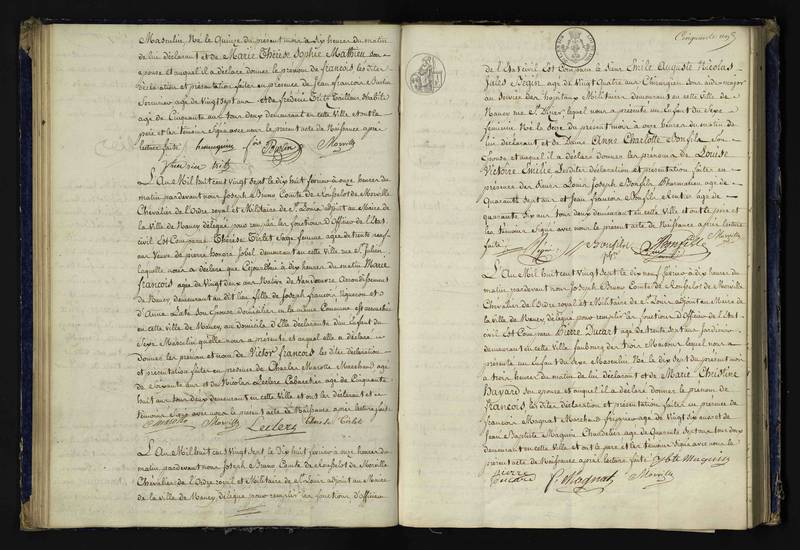 Masculin, Né le Quinze du présent mois à six heures du matin
de lui déclarant et de Marie Thérèse Sophie Mathieu son
épouse et auquel il a déclaré donner le prénom de françois les dites
déclaration et présentation faites en présence de Jean francois
Serrurier agé de vingt sept ans et de frédéric
agé de Cinquante un ans tous deux demeurant en cette Ville et ont le
père et les témoins signé avec nous le présent acte de Naissance après
lecture faite
Morville
L'An Mil huit cent vingt sept le dix huit fevrier à onze heures du
matin pardevant nous Joseph Bruno Comte de Morville
Chevalier de l'Ordre royal et Militaire de St Louis adjoint au Maire
de la Ville de Nancy délégué pour remplir les fonctions d'Officier de l'Etat
civil Est Comparue Thérèse Tirlet Sage femme agée de trente neuf
ans Veuve de pierre honoré Jobel demeurant en cette ville rue St Julien
laquelle nous a déclaré que Cejourd'hui à dix heures du matin Marie
françois agée de Vingt deux ans Native de Vandoeuvre Arrondissement
de Nancy demeurant au dit lieu fille de Joseph francois Vigneron et
d'Anne son épouse domiciliés en la même Commune est accouchée
en cette ville de Nancy au domicile d'Elle déclarante d'un Enfant du
Sexe Masculin qu'elle nous a présenté et auquel elle a déclaré
donner les prénom et nom de Victor françois les dites déclaration
et présentation faites en présence de Charles Marotte Marchand agé
de Soixante ans et de Nicolas Leclerc Cabaretier agé de Cinquante
huit ans tous deux demeurant en cette Ville et ont les déclarant et
témoins signé avec nous le présent acte de Naissance après lecture faite
Marotte Morville Leclerc
L'An Mil huit cent vingt sept le Dix huit fevrier à onze heures du
matin pardevant nous Joseph Bruno Comte de Morville
Chevalier de l'Ordre royal et Militaire de St Louis adjoint au Maire
de la Ville de Nancy, délégué pour remplir les fonctions d'Officier
Cinquante
de l'Etat civil Est Comparu le Sieur Emile Auguste Nicolas
Jules Bégin agé de Vingt Quatre ans Chirurgien sous aide major
au service des hopitaux Militaires demeurant en cette Ville de
Nancy rue St Dizier lequel nous a présenté un Enfant du Sexe
féminin Né le Seize du présent mois à onze heures du matin de
lui déclarant et de Dame Anne Charlotte Bonfils Son
Epouse et auquel il a déclaré donner les prénoms de Louise
Victoire Emilie Les dites déclaration et présentation faites en
présence des Sieurs Louis Joseph Bonfils Pharmacien agé de
Quarante Sept ans et Jean francois Bonfils Rentier agé de
quarante six ans tous deux demeurant en cette Ville et ont le père et
les témoins signé avec nous le présent acte de Naissance après lecture
faite
Bégin Bonfils Bonfils Morville
L'An Mil huit cent Vingt sept le dix neuf fevrier à dix heures du
matin pardevant nous Joseph Bruno Comte de Morville
Chevalier de l'Ordre royal et Militaire de St Louis adjoint au Maire de
la Ville de Nancy délégué pour remplir les fonctions d'Officier de l'Etat
civil Est Comparu Pierre Ducart agé de trente Sept ans Jardinier
demeurant en cette Ville faubourg des trois Maisons lequel nous a
présenté un Enfant du Sexe Masculin Né le Dix sept du présent mois
à trois heures du matin de lui déclarant et de Marie Christine
Havard son épouse et auquel il a déclaré donner le prénom de
françois les dites déclaration et présentation faites en présence de
francois Magnat Marchand fripier agé de Vingt six ans et de
Jean Baptiste Maquin Chaudelier agé de Quarante Sept ans tous deux
demeurant en cette Ville et ont le père et les témoins signé avec nous le
présent acte de Naissance après lecture faite
pierre
Magnat Morville